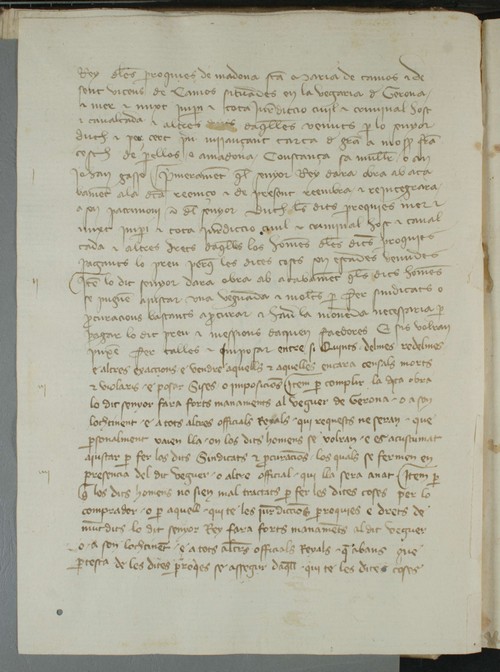 Rey de les parroquies de madona sta Maria de camos e de
sent vicens de Camos situades en la vegaria de Gerona
e mer e mixt imperi e tota jurediccio civil e criminal host
e cavalcada e altres drets daquelles venuts per lo senyor
Duch e per cert preu mijançant carta de gra a mossen
de perellos e a madona Constança sa muller o an
Johan Primerament quel senyor Rey dara obra ab aca
bament a la dita reemço e de present reembra e reintegrara
a son patrimoni del senyor Duch les dites parroquies mer e
mixt imperi e tota jurediccio civil e criminal host e caval
cada e altres drets daquelles los homens de les dites parroquies
pagants lo preu perque les dites coses son estades venudes
Item lo dit senyor dara obra ab acabament quels dits homens
se pugen ajustar una vegada e moltes per fer sindicats o
procuracions bastants a procurar e haver la moneda necessaria per
pagar lo dit preu e messions daquen faedores E sis volran
puxen fer talles e imposar entre si Quints delmes redelmes
e altres exaccions e vendre aquells e aquelles encara censals morts
e violaris e posar Sises o imposicions Item per complir la dita obra
lo dit senyor fara forts manaments al veguer de Gerona o a son
lochtinent e a tots altres officials Reyals qui requests ne seran que
personalment vagen lla on los dits homens se volran e es acustumat
ajustar per fer los dits Sindicats e procuracions los quals se fermen en
presencia del dit veguer o altre official qui lla sera anat Item per
que los dits homens no sien mal tractats per fer les dites coses per lo
comprador o per aquell qui te les jurdiccions parroquies e drets de
mutdits lo dit senyor Rey fara forts manaments al dit veguer
o a son lochtinent e a tots altres officials Reyals que abans que
pertesta de les dites parroquies se assegur daquell qui te les dites coses